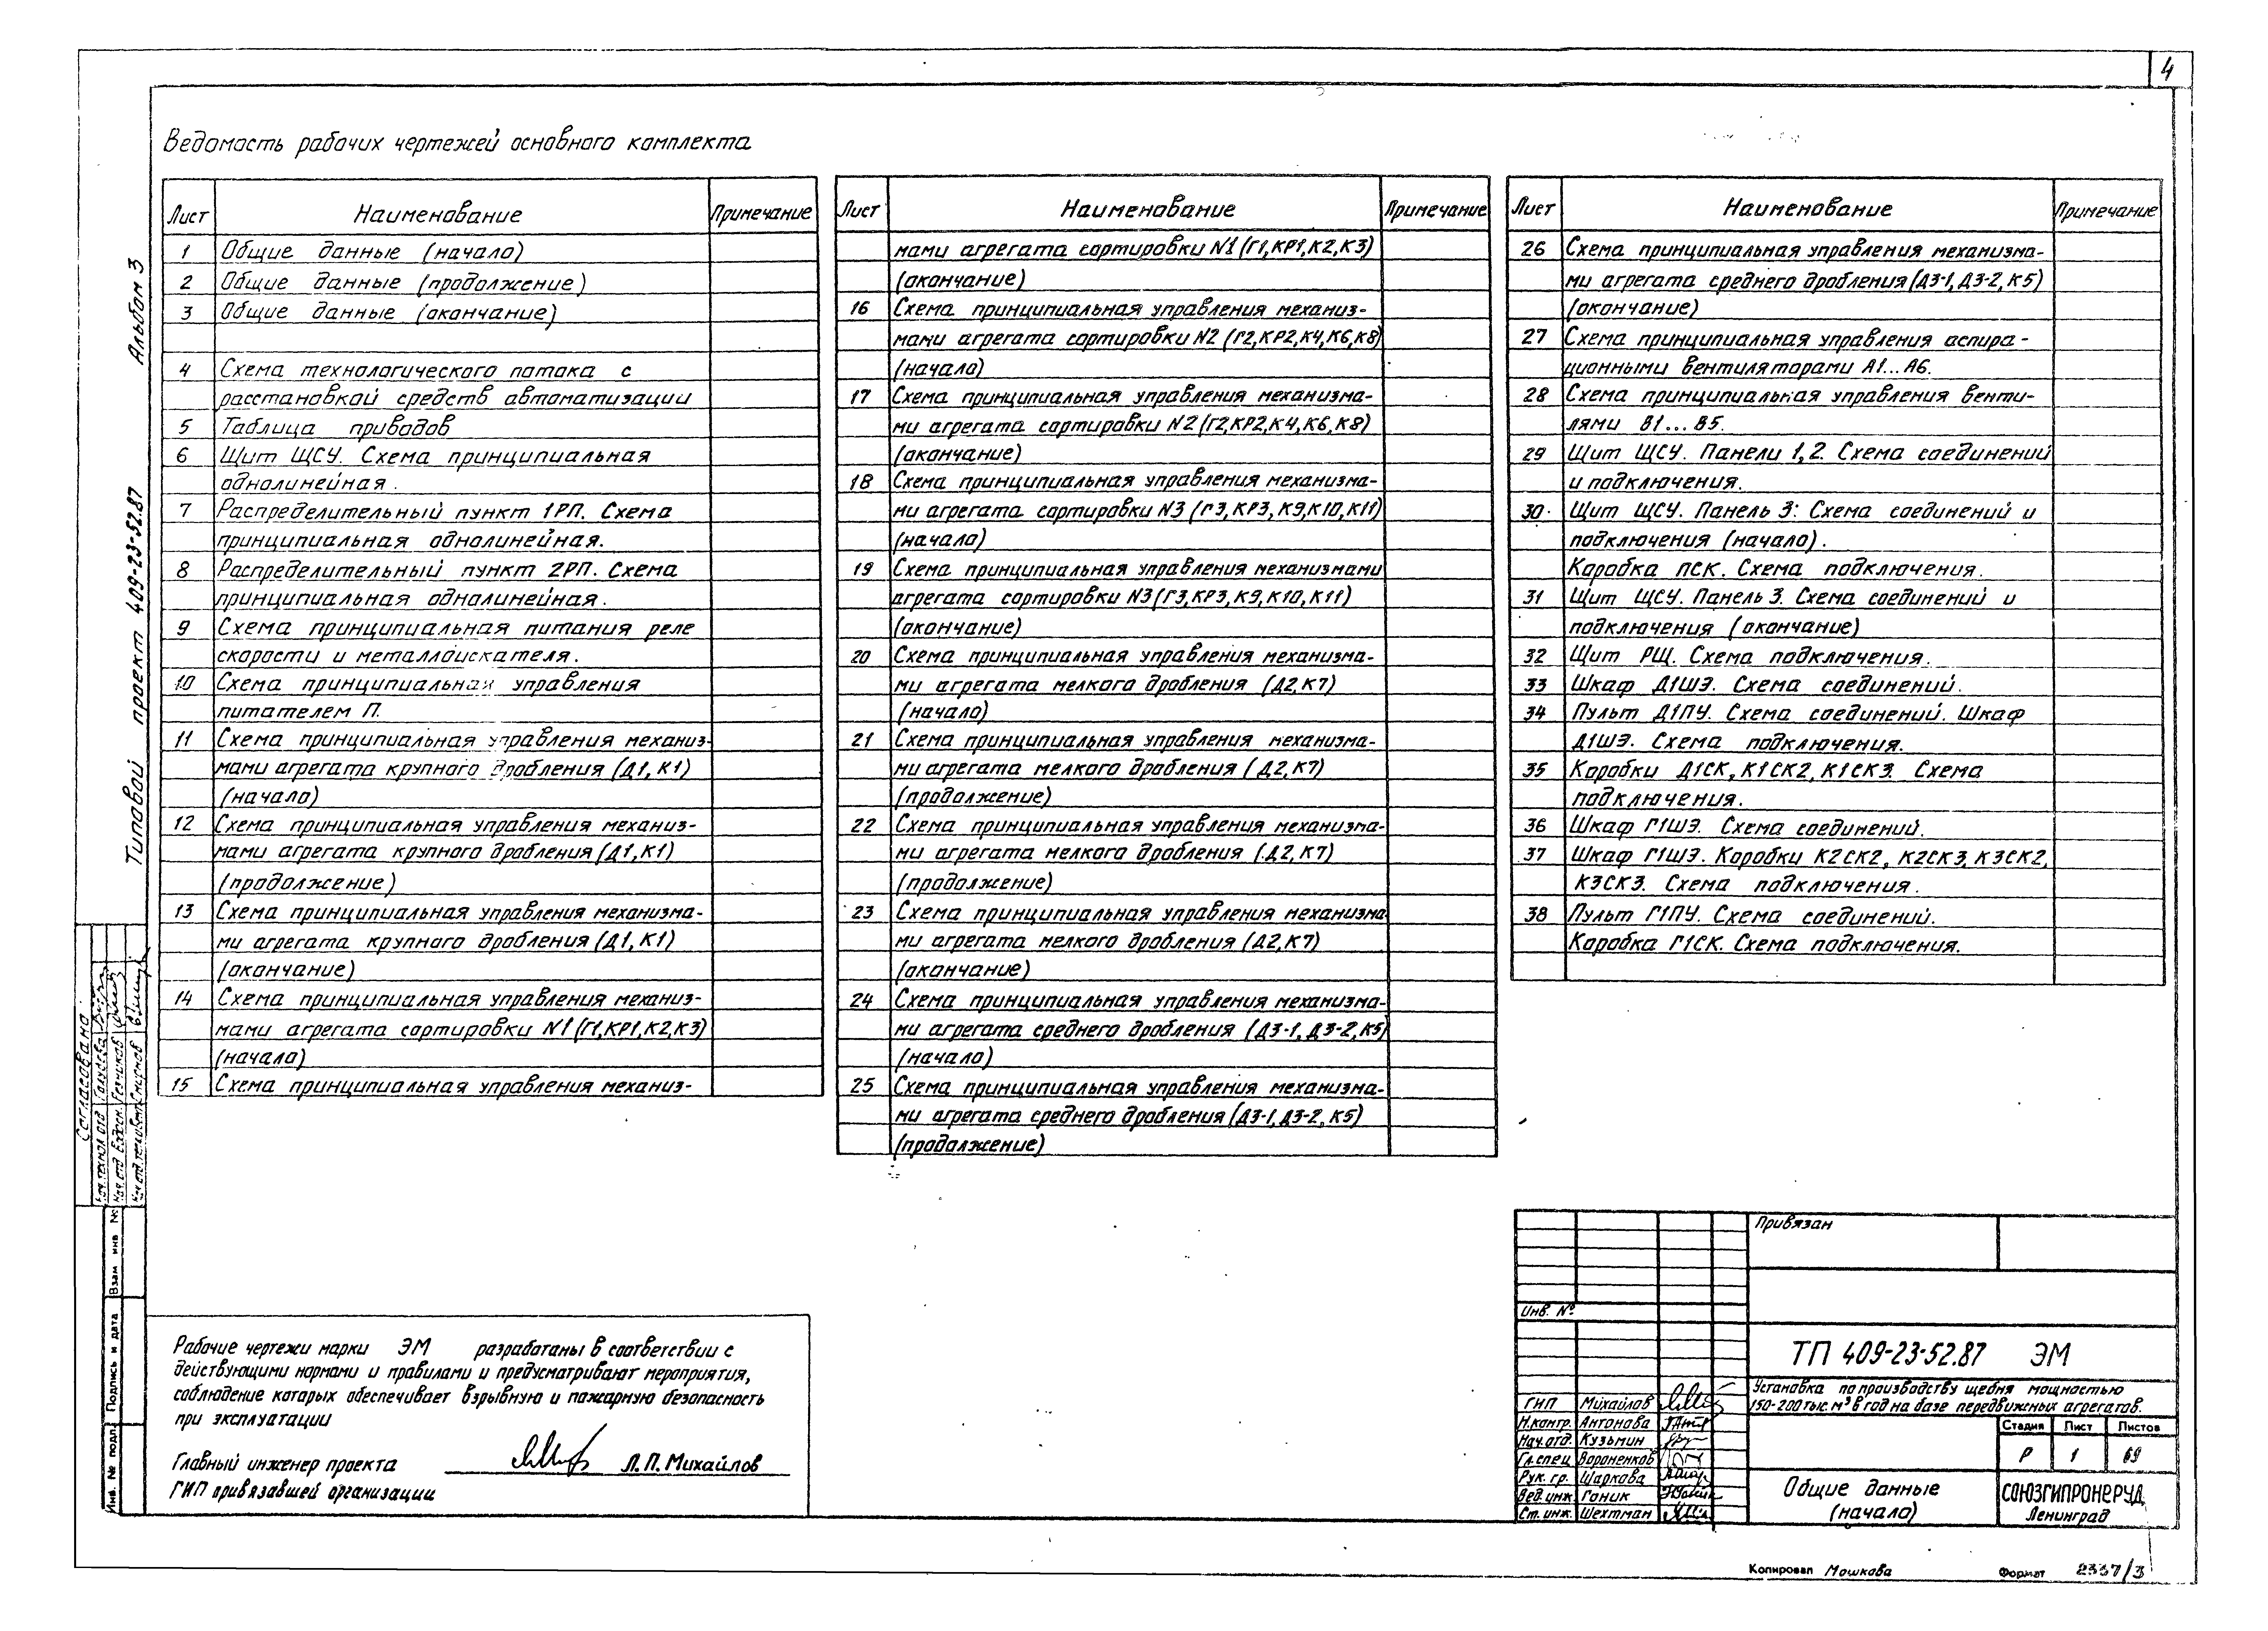 4
Ведомость рабочих чертежей основного комплекта
Лист Наименование Примечание
1 Общие данные (начало)
2 Общие данные (продолжение)
3 Общие данные (окончание)
4 Схема технологического потока с
расстановкой средств автоматизации
5 Таблица приводов
6 Щит ЩСУ. Схема принципиальная
однолинейная.
7 Распределительный пункт 1РП. Схема
принципиальная однолинейная.
8 Распределительный пункт 2РП. Схема
принципиальная однолинейная.
9 Схема принципиальная питания реле
скорости и металлоискателя.
10 Схема принципиальная управления
питателем П.
11 Схема принципиальная управления механиз-
мами агрегата крупного дробления (Д1, К1)
(начало)
12 Схема принципиальная управления механиз-
мами агрегата крупного дробления (Д1, К1)
(продолжение)
13 Схема принципиальная управления механизма-
ми агрегата крупного дробления (Д1, К1)
(окончание)
14 Схема принципиальная управления механиз-
мами агрегата сортировки N1 (Г1, КР1, К2, К3)
(начало)
15 Схема принципиальная управления механиз-
Лист Наименование Примечание
мами агрегата сортировки N1 (Г1, КР1, К2, К3)
(окончание)
16 Схема принципиальная управления механиз-
мами агрегата сортировки N2 (Г2, КР2, К4, К6, К8)
(начало)
17 Схема принципиальная управления механизма-
ми агрегата сортировки N2 (Г2, КР2, К4, К6, К8)
(окончание)
18 Схема принципиальная управления механизма-
ми агрегата сортировки N3 (Г3, КР3, К9, К10, К11)
(начало)
19 Схема принципиальная управления механизмами
агрегата сортировки N3 (Г3, КР3, К9, К10, К11)
(окончание)
20 Схема принципиальная управления механизма-
ми агрегата мелкого дробления (Д2, К7)
(начало)
21 Схема принципиальная управления механизма-
ми агрегата мелкого дробления (Д2, К7)
(продолжение)
22 Схема принципиальная управления механизма-
ми агрегата мелкого дробления (Д2, К7)
(продолжение)
23 Схема принципиальная управления механизма
ми агрегата мелкого дробления (Д2, К7)
(окончание)
24 Схема принципиальная управления механизма-
ми агрегата среднего дробления (Д3-1, Д3-2, К5)
(начало)
25 Схема принципиальная управления механизма-
ми агрегата среднего дробления (Д3-1, Д3-2, К5)
(продолжение)
Лист Наименование Примечание
26 Схема принципиальная управления механизма-
ми агрегата среднего дробления (Д3-1, Д3-2, К5)
(окончание)
27 Схема принципиальная управления аспира-
ционными вентиляторами А1...А6.
28 Схема принципиальная управления венти-
лями В1...В5.
29 Щит ЩСУ. Панели 1, 2. Схема соединений
и подключения.
30 Щит ЩСУ. Панель 3. Схема соединений и
подключения (начало).
Коробка ПСК. Схема подключения.
31 Щит ЩСУ. Панель 3. Схема соединений и
подключения (окончание)
32 Щит РЩ. Схема подключения.
33 Шкаф Д1ШЭ. Схема соединений.
34 Пульт Д1ПУ. Схема соединений. Шкаф
Д1ШЭ. Схема подключения.
35 Коробки Д1СК, К1СК2, К1СК3. Схема
подключения.
36 Шкаф Г1ШЭ. Схема соединений.
37 Шкаф Г1ШЭ. Коробки К2СК2, К2СК3, К3СК2,
К3СК3. Схема подключения.
38 Пульт Г1ПУ. Схема соединений.
Коробка Г1СК. Схема подключения.
Типовой проект 409-23-52.87 Альбом 3
Согласовано
Нач. технол. отд Голубева
Нач. отд Резников
Смирнов
Взам инв №
Подпись и дата
Инв. № подл.
Рабочие чертежи марки ЭМ разработаны в соответствии с
действующими нормами и правилами и предусматривают мероприятия,
соблюдение которых обеспечивает взрывную и пожарную безопасность
при эксплуатации
Главный инженер проекта Л. П. Михайлов
ГИП привязавшей организации
Привязан
Инв. №
ТП 409-23-52.87 ЭМ
Установка по производству щебня мощностью
150-200 тыс. м³ в год на базе передвижных агрегатов.
ГИП Михайлов
Н.контр. Антонова
Нач.отд. Кузьмин
Гл.спец Вороненков
Рук. гр. Шаркова
Вед.инж. Ганик
Ст. инж. Шехтман
Стадия Лист Листов
Р 1 69
Общие данные
(начало)
СОЮЗГИПРОНЕРУД
Ленинград
Копировал Мошкова Формат 2337/3